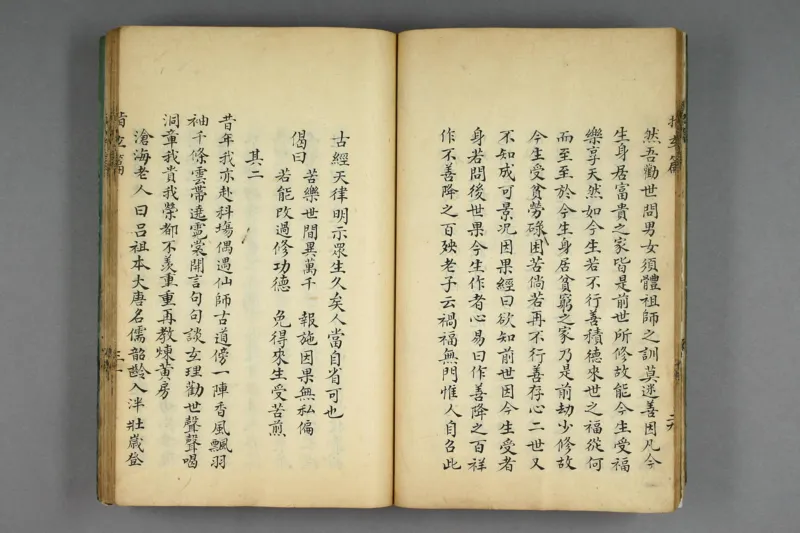 然吾勸世間男女須體祖師之訓莫迷善因凡今
生身居富貴之家皆是前世所修故能今生受福
樂享天然如今生若不行善積德來世之福從何
而至至於今生身居貧窮之家乃是前劫少修故
今生受貧勞碌困苦倘若再不行善存心二世又
不知成可景況因果經曰欲知前世因今生受者
身若問後世果今生作者心易曰作善降之百祥
作不善降之百殃老子云禍福無門惟人自召此
古經天律明示眾生久矣人當自省可也
偈曰 苦樂世間異萬千 報施因果無私偏
若能改過修功德 免得來生受苦煎
其二
昔年我亦赴科塲偶遇仙師古道傍一陣香風飄羽
袖千條雲帶遶霓裳開言句句談玄理勸世聲聲喝
洞章我貴我榮都不羨重重再教煉黃房
滄海老人曰呂祖本大唐名儒韶齡入泮壯歲登